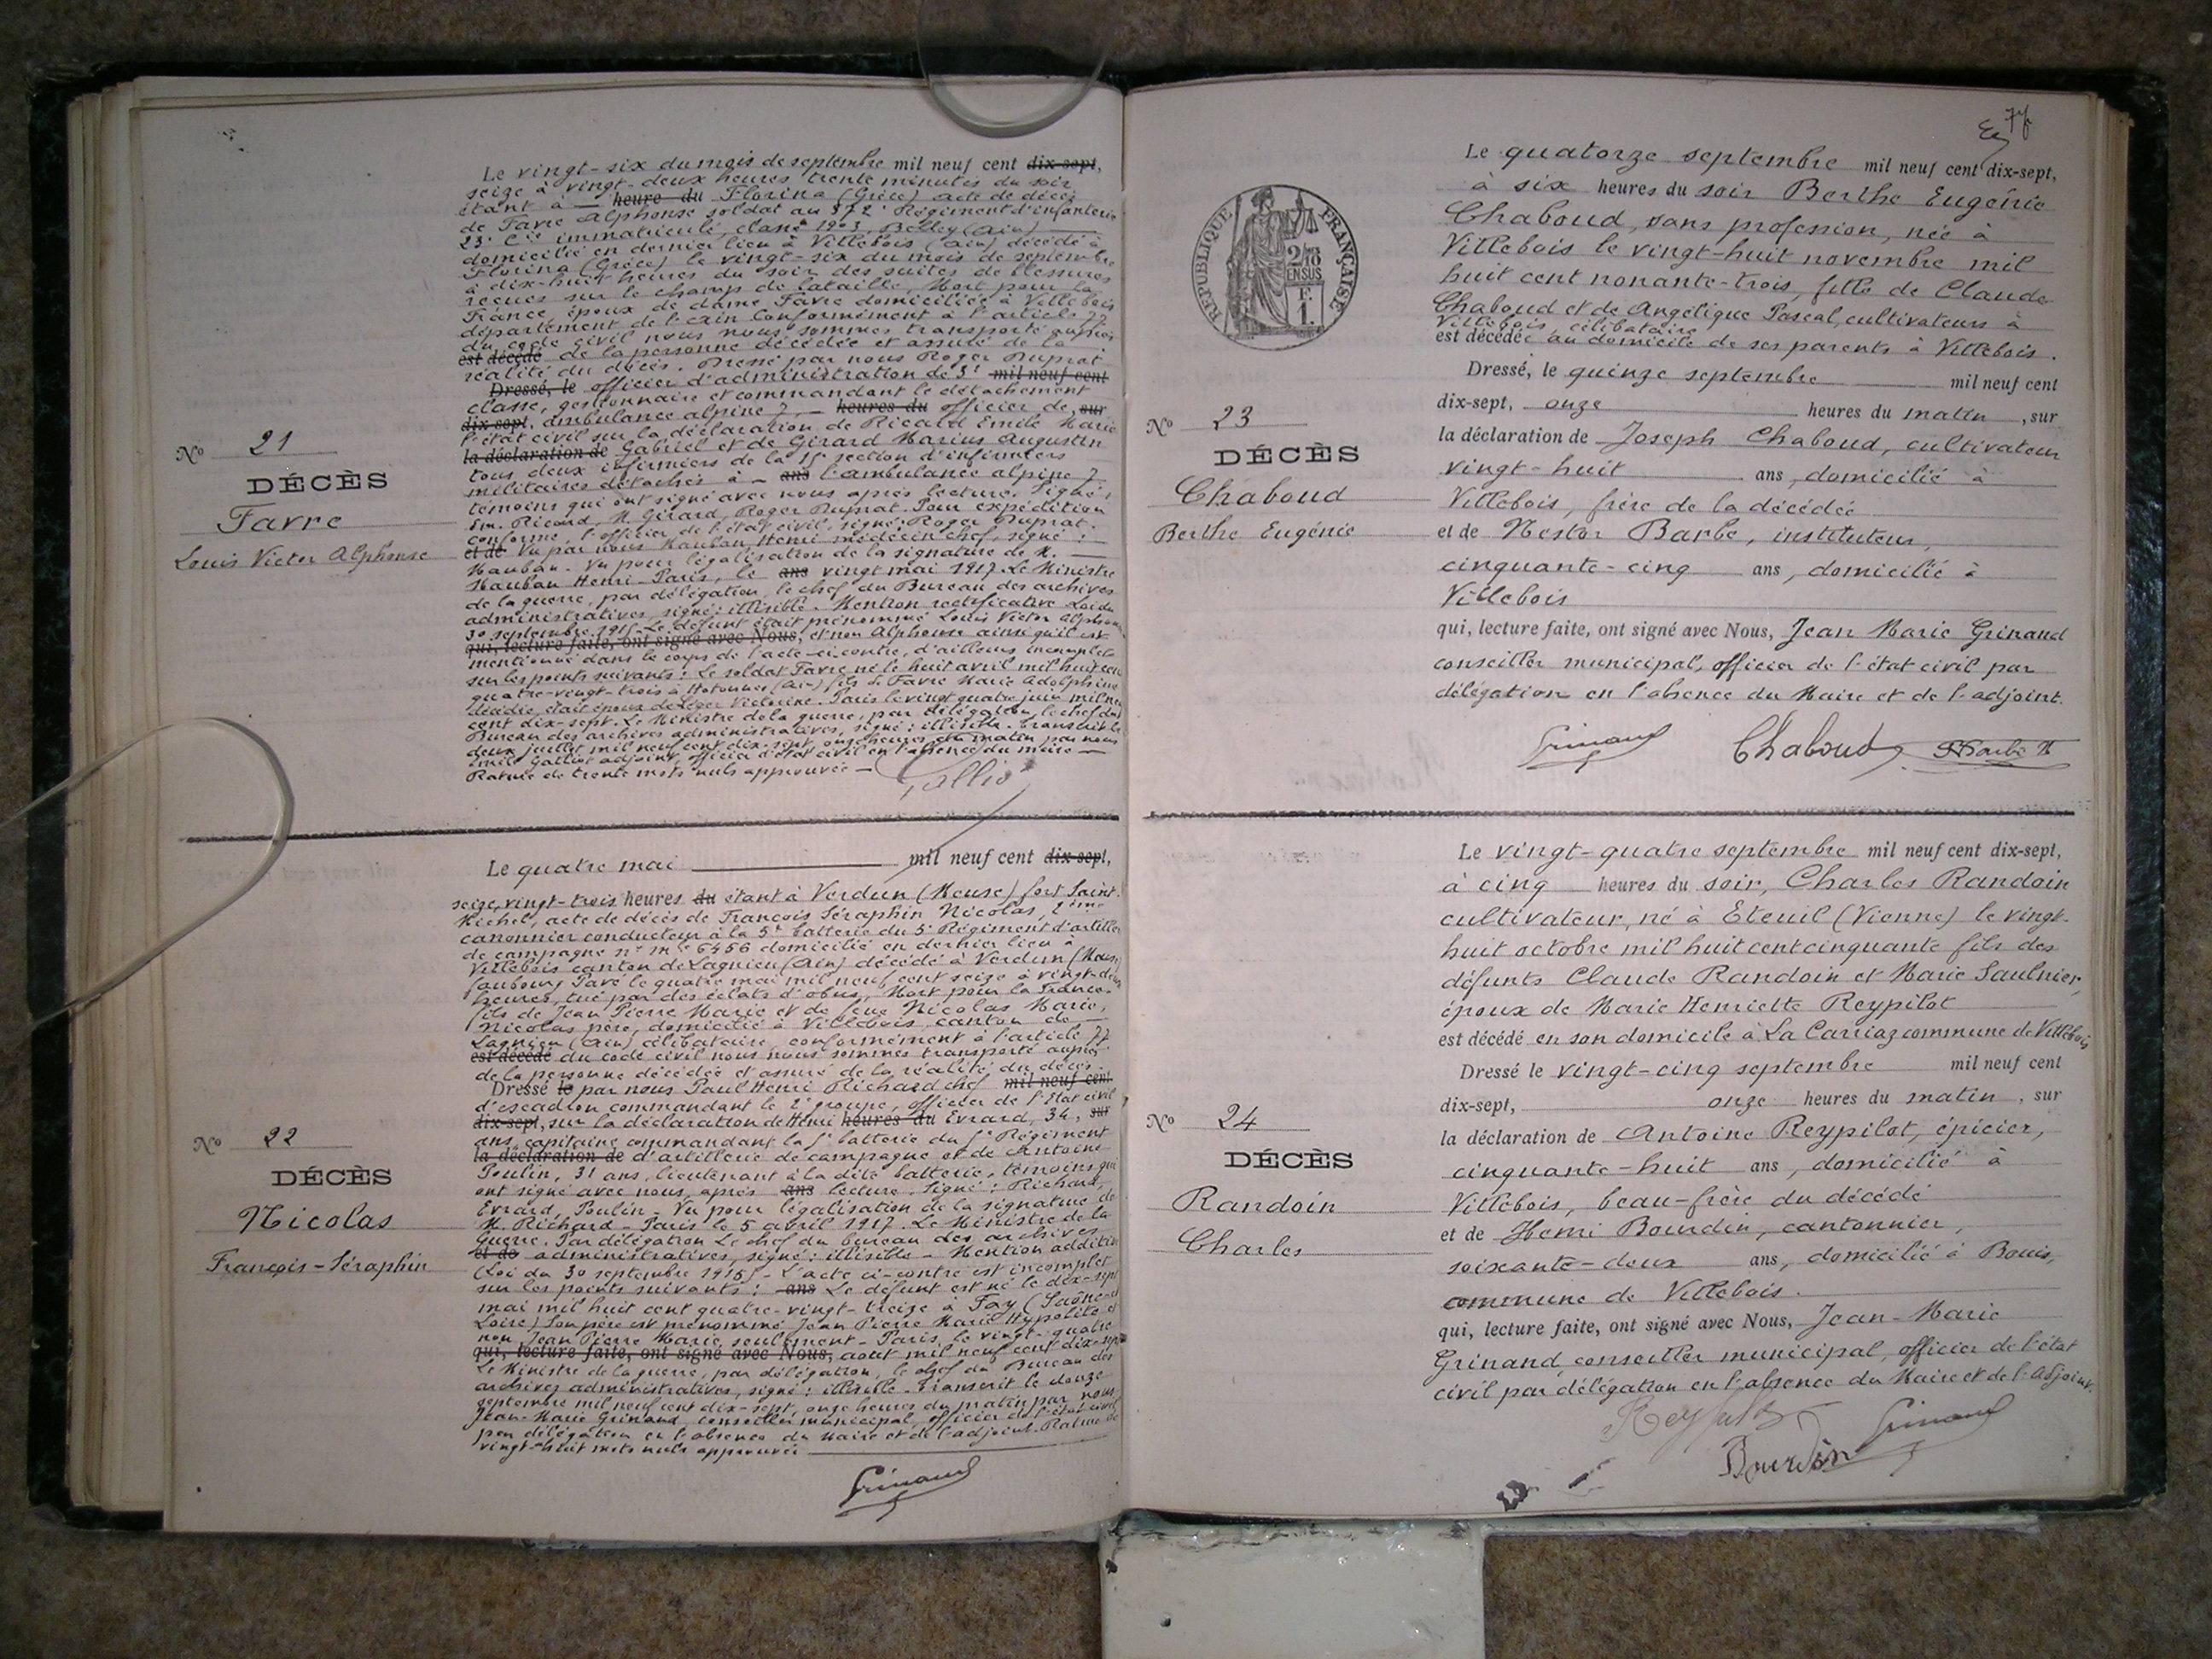 Le vingt-six du mois de septembre mil neuf cent dix-sept,
seize à vingt-deux heures trente minutes du soir
étant à — heure du Florina (Grèce) acte de décès
de Favre Alphonse soldat au 372e Régiment d'infanterie
23e Cie immatriculé, classe 1903, Belley (Ain)
domicilié en dernier lieu à Villebois (Ain) décédé à
Florina (Grèce) le vingt-six du mois de septembre
à dix-huit heures du soir des suites de blessures
reçues sur le champ de bataille, Mort pour la
France, époux de dame Favre domiciliée à Villebois
département de l'Ain Conformément à l'article 77
du code civil nous nous sommes transporté auprès
est décédé de la personne décédée et assuré de la
réalité du décès. Dressé par nous Roger Duprat
Dressé, le officier d'administration de 3e mil neuf cent
classe, gestionnaire et commandant le détachement
dix-sept, ambulance alpine 7, — heures du officier de, sur
l'état civil sur la déclaration de Ricard Emile Marie
la déclaration de Gabriel et de Girard Marius Augustin
tous deux infirmiers de la section d'infirmiers
militaires détachés à — ans l'ambulance alpine 7
témoins qui ont signé avec nous après lecture. Signé:
Em. Ricard, M. Girard, Roger Duprat. Pour expédition
conforme, l'officier de l'état civil, signé: Roger Duprat.
et de Vu par nous Mauban Henri médecin chef, signé:
Mauban. Vu pour légalisation de la signature de M. —
Mauban Henri - Paris, le ans vingt mai 1917. Le Ministre
de la guerre, par délégation, le chef du Bureau des archives
administratives, signé: illisible. Mention rectificative Loi du
30 septembre 1915 - Le défunt était prénommé Louis Victor Alphonse
qui, lecture faite, ont signé avec Nous, et non Alphonse ainsi qu'il est
mentionné dans le corps de l'acte ci-contre, d'ailleurs incomplet
sur les points suivants: Le soldat Favre né le huit avril mil huit cent
quatre-vingt-trois à Hotonnes (Ain) fils de Favre Marie Adolphine
décédée, était époux de Léger Victorine. Paris le vingt quatre juin mil neuf
cent dix-sept. Le Ministre de la guerre, par délégation, le chef du
Bureau des archives administratives, signé: illisible. Transcrit le
deux juillet mil neuf cent dix-sept, onze heures du matin par nous
Emile Galliot adjoint, officier d'état civil en l'absence du maire —
Rature de trente mots nuls approuvée —
N° 21
DÉCÈS
Favre
Louis Victor Alphonse
Le quatre mai mil neuf cent dix-sept,
seize, vingt-trois heures du étant à Verdun (Meuse) fort Saint-
Michel, acte de décès de François Séraphin Nicolas, 2ème
canonnier conducteur à la 5e batterie du 5e Régiment d'artillerie
de campagne n° mle 6456 domicilié en dernier lieu à
Villebois canton de Lagnieu (Ain) décédé à Verdun (Meuse)
faubourg Pavé le quatre mai mil neuf cent seize à vingt-deux
heures, tué par des éclats d'obus, Mort pour la France.
fils de Jean Pierre Marie et de feue Nicolas Marie,
Nicolas père, domicilié à Villebois, canton de —
Lagnieu (Ain) célibataire, conformément à l'article 77
est décédé du code civil nous nous sommes transporté auprès
de la personne décédée et assuré de la réalité du décès.
Dressé le par nous Paul Henri Richard chef mil neuf cent
d'escadron commandant le 2e groupe, officier de l'état civil
dix-sept, sur la déclaration de Henri heures du Evrard, 34, sur
ans, capitaine commandant la 5e batterie du 5e Régiment
la déclaration de d'artillerie de campagne et de Antoine
Poulin, 31 ans, lieutenant à la dite batterie, témoins qui
ont signé avec nous, après ans lecture. Signé: Richard,
Evrard, Poulin - Vu pour légalisation de la signature de
M. Richard - Paris le 5 avril 1917. Le Ministre de la
Guerre. Par délégation Le chef du bureau des archives
et de administratives, signé: illisible - Mention additive
(Loi du 30 septembre 1915) - L'acte ci-contre est incomplet
sur les points suivants: ans Le défunt est né le dix-sept
mai mil huit cent quatre-vingt-treize à Fay (Saône-et-
Loire) Son père est prénommé Jean Pierre Marie Hypolite et
non Jean Pierre Marie seulement - Paris, le vingt-quatre
qui, lecture faite, ont signé avec Nous, août mil neuf cent dix-sept
Le Ministre de la guerre, par délégation, le chef du Bureau des
archives administratives, signé: illisible. Transcrit le douze
septembre mil neuf cent dix-sept, onze heures du matin par nous
Jean-Marie Grinand, conseiller municipal, officier de l'état civil
par délégation en l'absence du Maire et de l'adjoint. Rature de
vingt-huit mots nuls approuvée
Grinand
N° 22
DÉCÈS
Nicolas
François-Séraphin
77
REPUBLIQUE FRANÇAISE
2/10
EN SUS
F.
1.
Le quatorze septembre mil neuf cent dix-sept,
à six heures du soir Berthe Eugénie
Chaboud, sans profession, née à
Villebois le vingt-huit novembre mil
huit cent nonante-trois, fille de Claude
Chaboud et de Angélique Pascal, cultivateurs à
Villebois, célibataire
est décédée au domicile de ses parents à Villebois.
Dressé, le quinze septembre mil neuf cent
dix-sept, onze heures du matin, sur
la déclaration de Joseph Chaboud, cultivateur
vingt-huit ans, domicilié à
Villebois, frère de la décédée
et de Nestor Barbe, instituteur,
cinquante-cinq ans, domicilié à
Villebois
qui, lecture faite, ont signé avec Nous, Jean Marie Grinand
conseiller municipal, officier de l'état civil par
délégation en l'absence du Maire et de l'adjoint.
Grinand Chaboud Barbe N
N° 23
DÉCÈS
Chaboud
Berthe Eugénie
Le vingt-quatre septembre mil neuf cent dix-sept,
à cinq heures du soir, Charles Randoin
cultivateur, né à Eteuil (Vienne) le vingt-
huit octobre mil huit cent cinquante fils des
défunts Claude Randoin et Marie Saulnier,
époux de Marie Henriette Reypilot
est décédé en son domicile à La Carriaz commune de Villebois
Dressé le vingt-cinq septembre mil neuf cent
dix-sept, onze heures du matin, sur
la déclaration de Antoine Reypilot, épicier,
cinquante-huit ans, domicilié à
Villebois, beau-frère du décédé
et de Henri Bourdin, cantonnier,
soixante-deux ans, domicilié à Bouis,
commune de Villebois.
qui, lecture faite, ont signé avec Nous, Jean-Marie
Grinand, conseiller municipal, officier de l'état
civil par délégation en l'absence du Maire et de l'Adjoint.
Reypilot Grinand
Bourdin
N° 24
DÉCÈS
Randoin
Charles